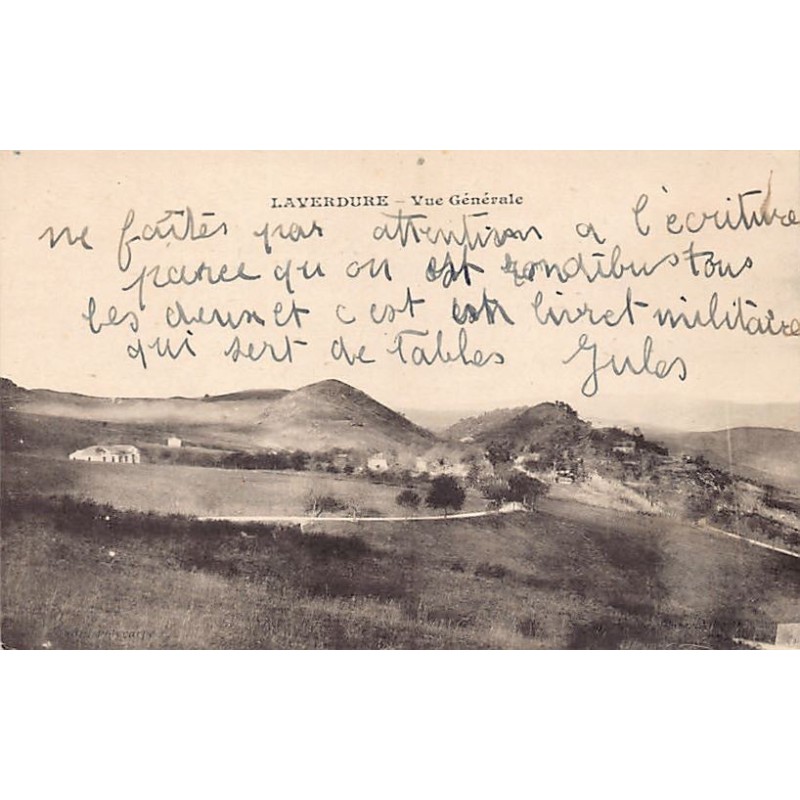 LAVERDURE – Vue Générale
ne faîtes pas attention a l'écriture
parce qu on est rondibus tous
les deux et c est livret militaire
qui sert de tables Jules